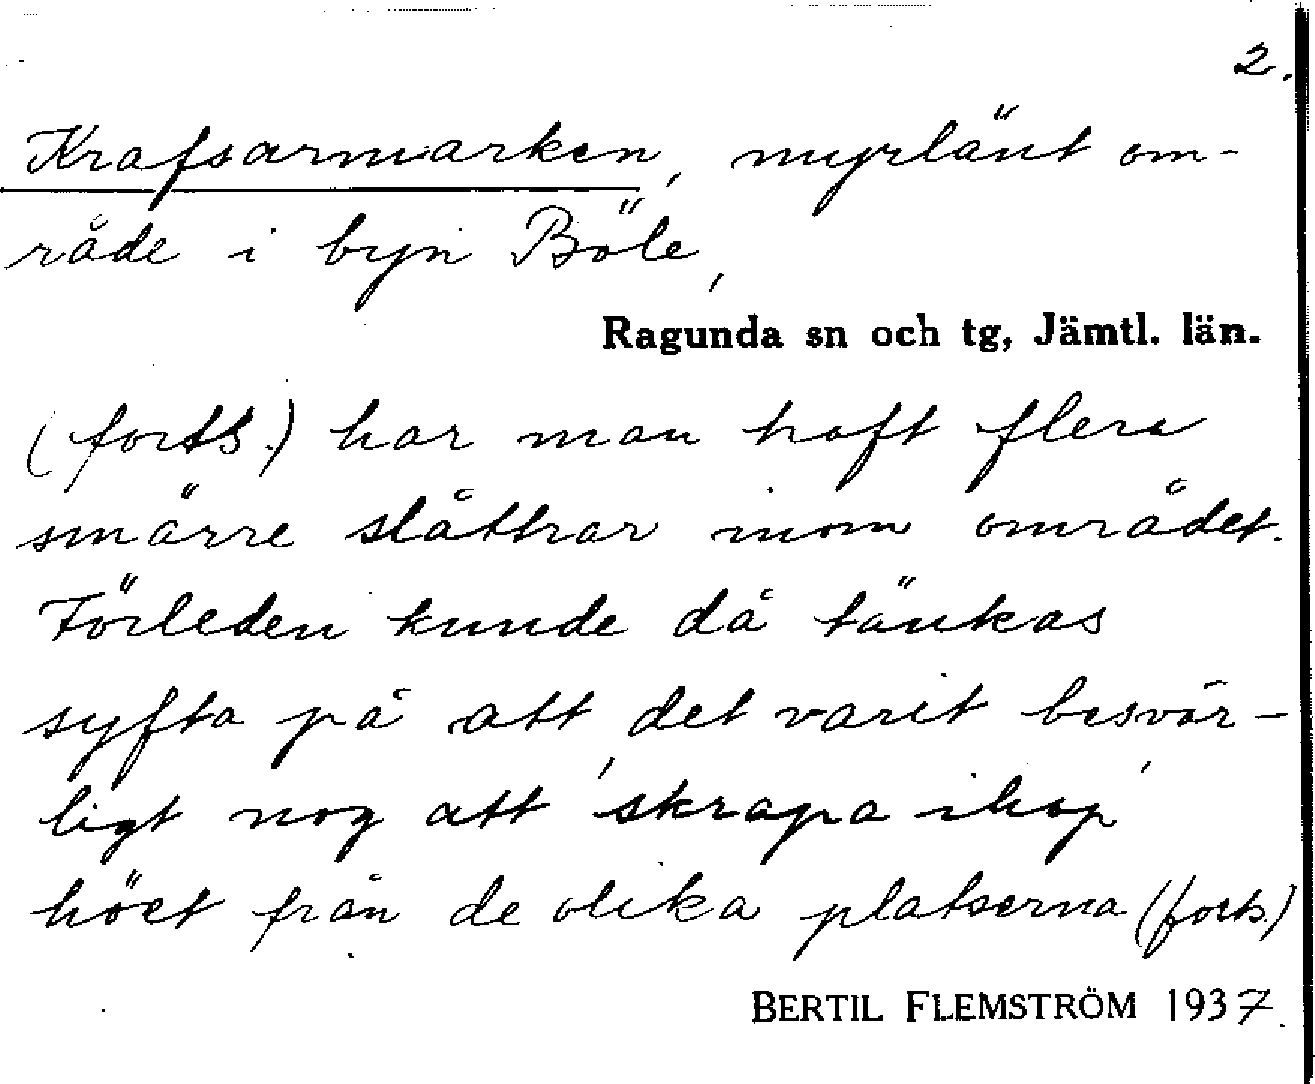 2.
Krafsarmarken, myrlänt om-
råde i byn Böle,
Ragunda sn och tg, Jämtl. län.
(forts.) har man haft flera
smärre slåttrar inom området.
Förleden kunde då tänkas
syfta på att det varit besvär-
ligt nog att 'skrapa ihop'
höet från de olika platserna (forts.)
BERTIL FLEMSTRÖM 1937.